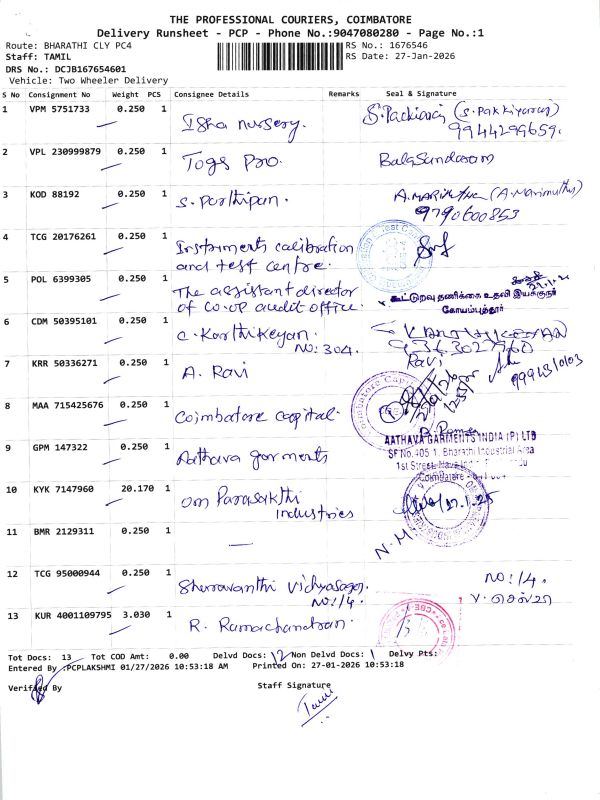 THE PROFESSIONAL COURIERS, COIMBATORE
Delivery Runsheet - PCP - Phone No.:9047080280 - Page No.:1
Route: BHARATHI CLY PC4 RS No.: 1676546
Staff: TAMIL RS Date: 27-Jan-2026
DRS No.: DCJB167654601
Vehicle: Two Wheeler Delivery
S No Consignment No Weight PCS Consignee Details Remarks Seal & Signature
1 VPM 5751733 0.250 1 Isha nursery. S. Packiaraj (S. Pakkiyaraj)
9944299659.
2 VPL 230999879 0.250 1 Togs Pro. BalaSundaram
3 KOD 88192 0.250 1 S. Parthipan. A. MARIMUTHU (A. Marimuthu)
9790600853
4 TCG 20176261 0.250 1 Instruments calibration
and test centre.
5 POL 6399305 0.250 1 The assistant director
of co.op audit office.
கூட்டுறவு தணிக்கை உதவி இயக்குநர்
கோயம்புத்தூர்
6 CDM 50395101 0.250 1 C. Karthikeyan.
NO: 304.
7 KRR 50336271 0.250 1 A. Ravi Ravi
8 MAA 715425676 0.250 1 Coimbatore capital.
9 GPM 147322 0.250 1 Aathava garments
AATHAVA GARMENTS INDIA (P) LTD
SF No.405 1, Bharathi Industrial Area
1st Street,
Coimbatore
10 KYK 7147960 20.170 1 Om Parasakthi
industries
11 BMR 2129311 0.250 1 —
12 TCG 95000944 0.250 1 Sherravanthi Vidhyasagar. NO: 14.
NO: 14.
13 KUR 4001109795 3.030 1 R. Ramachandran.
Tot Docs: 13 Tot COD Amt: 0.00 Delvd Docs: 12 Non Delvd Docs: 1 Delvy Pts:
Entered By :PCPLAKSHMI 01/27/2026 10:53:18 AM Printed On: 27-01-2026 10:53:18
Verified By Staff Signature